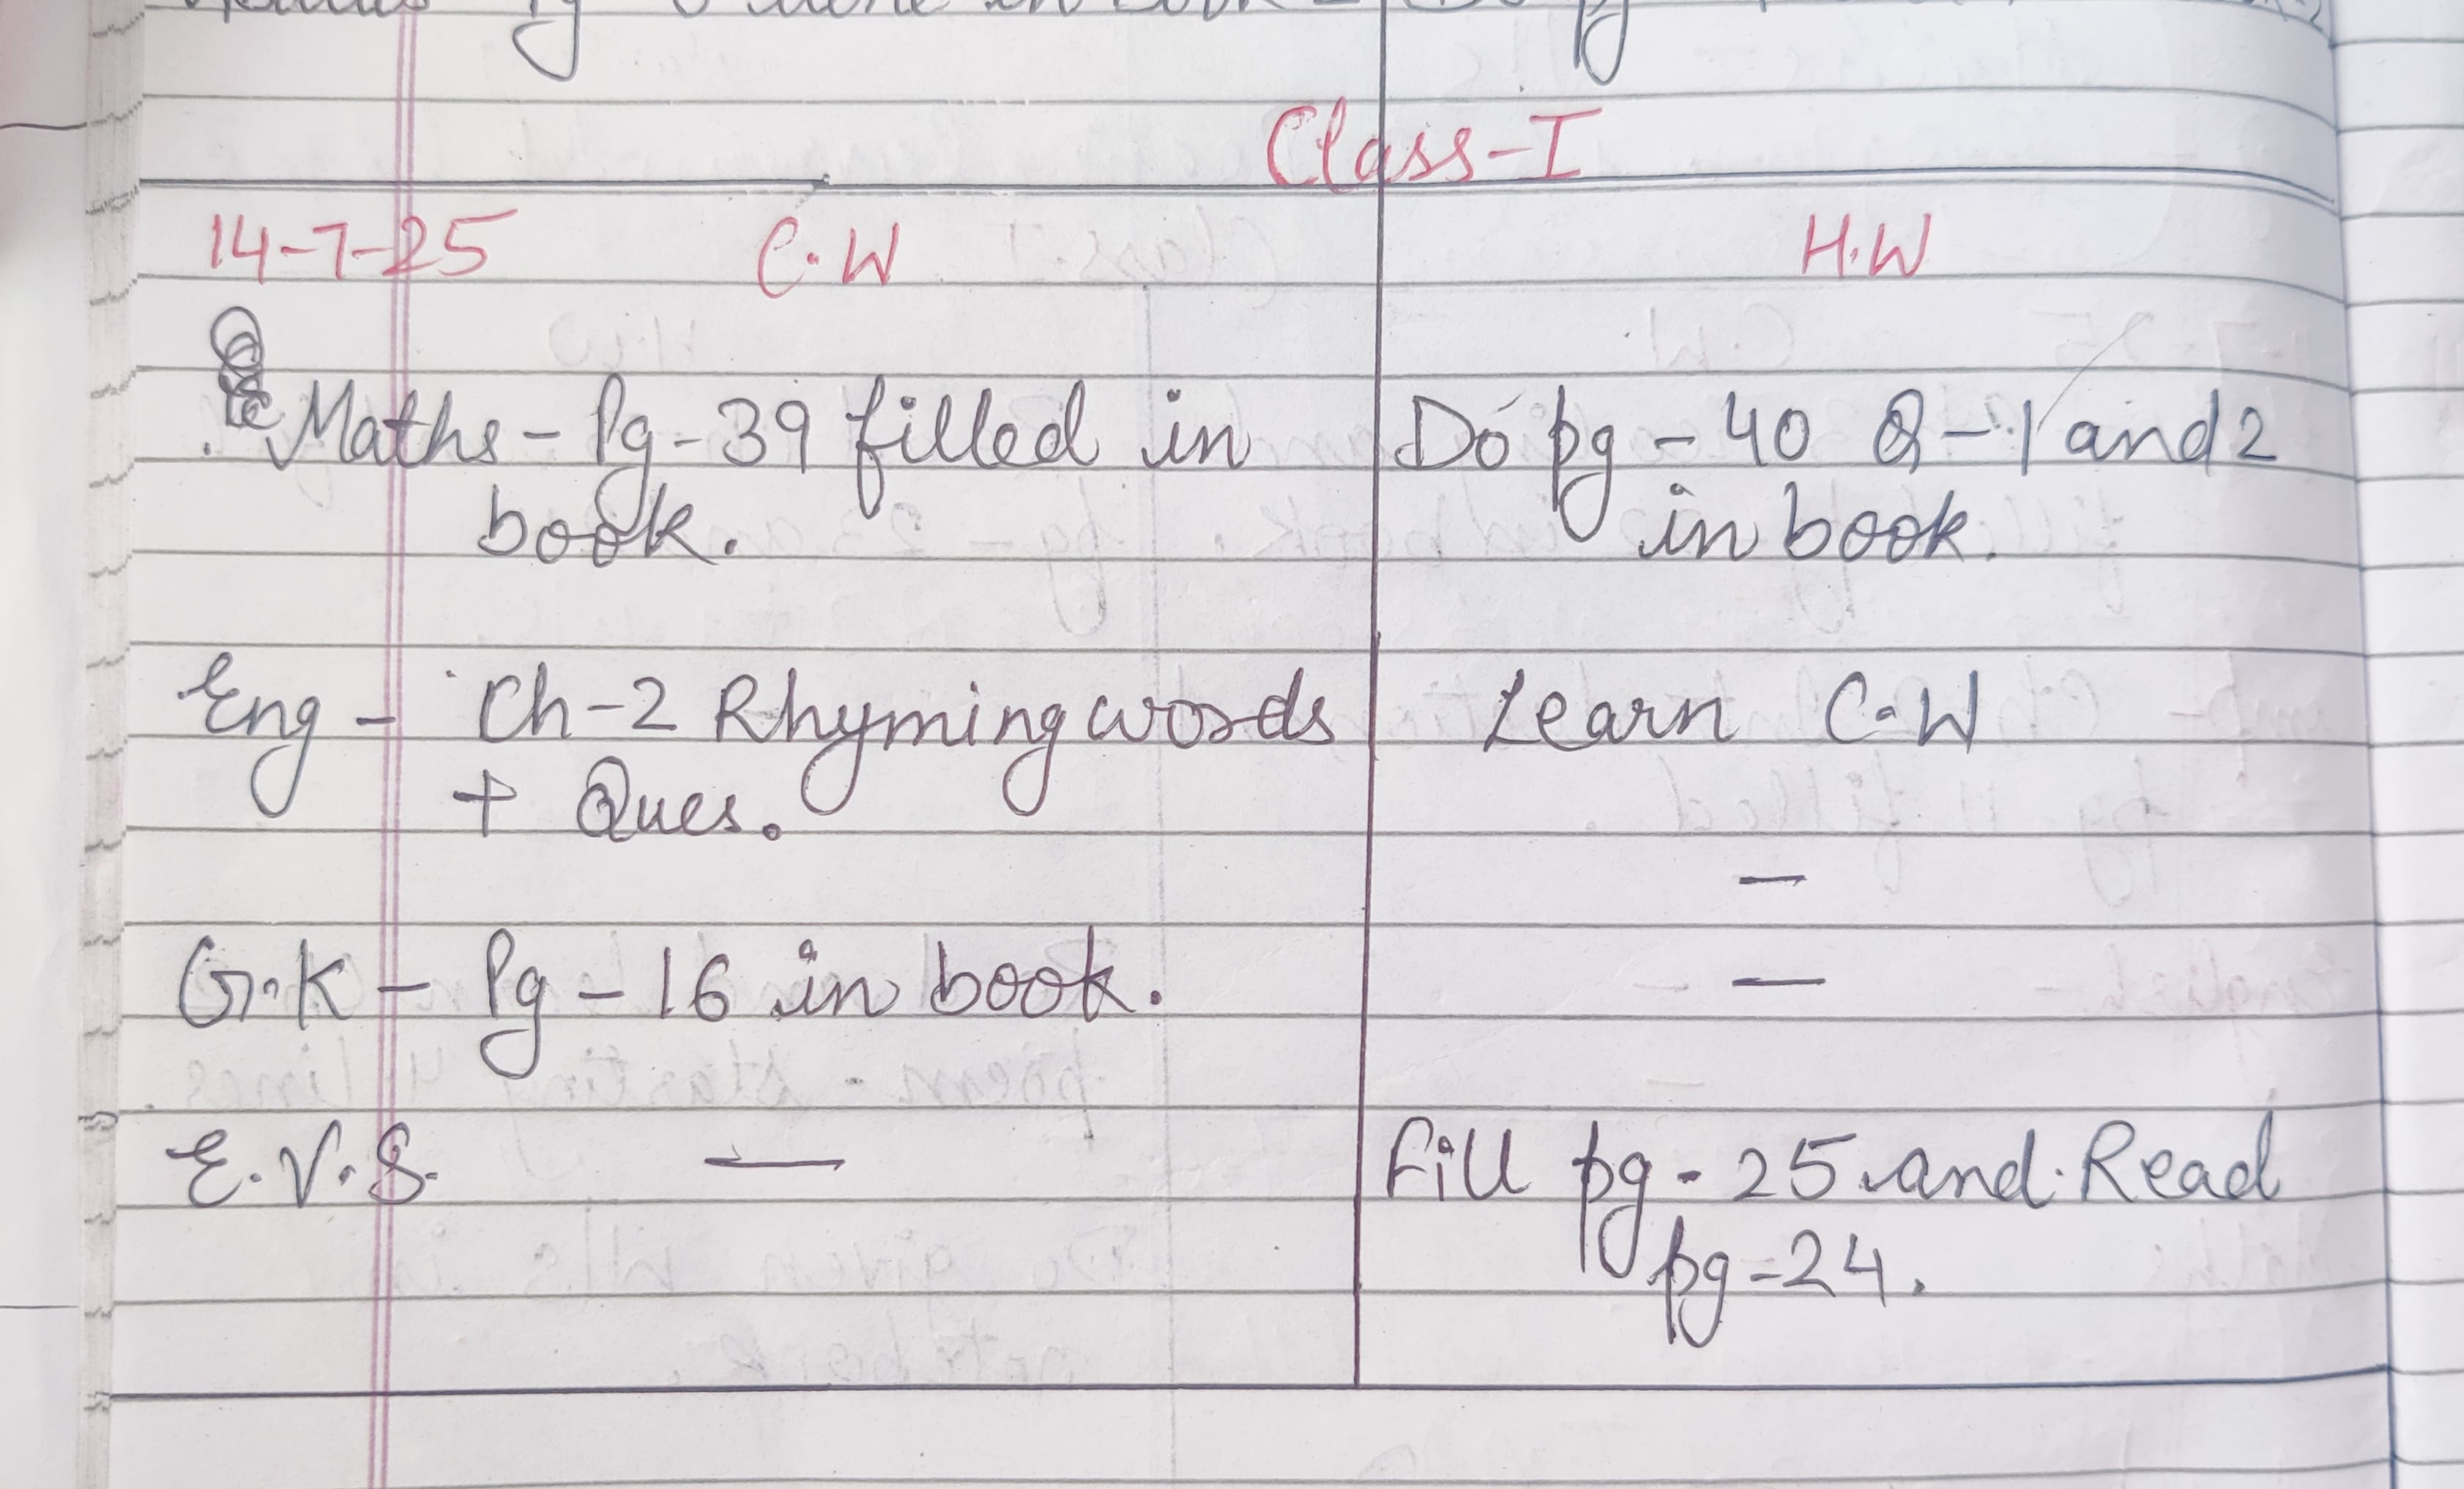 Class-I
14-7-25 C.W H.W
Maths - Pg - 39 filled in
book.
Do pg - 40 Q - 1 and 2
in book.
Eng - Ch-2 Rhyming words
+ Ques.
Learn C.W
—
G.K - Pg - 16 in book.
—
E.V.S. —
Fill pg - 25 and Read
pg - 24.